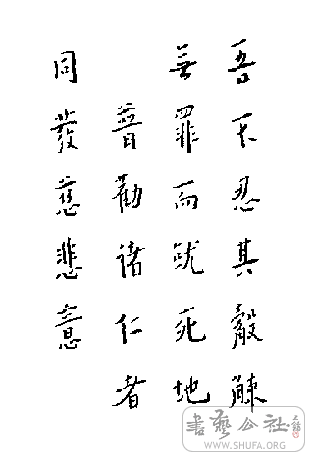 吾不忍其觳觫
無罪而就死地
普勸諸仁者
同發慈悲意
書藝公社
WWW.SHUFA.ORG